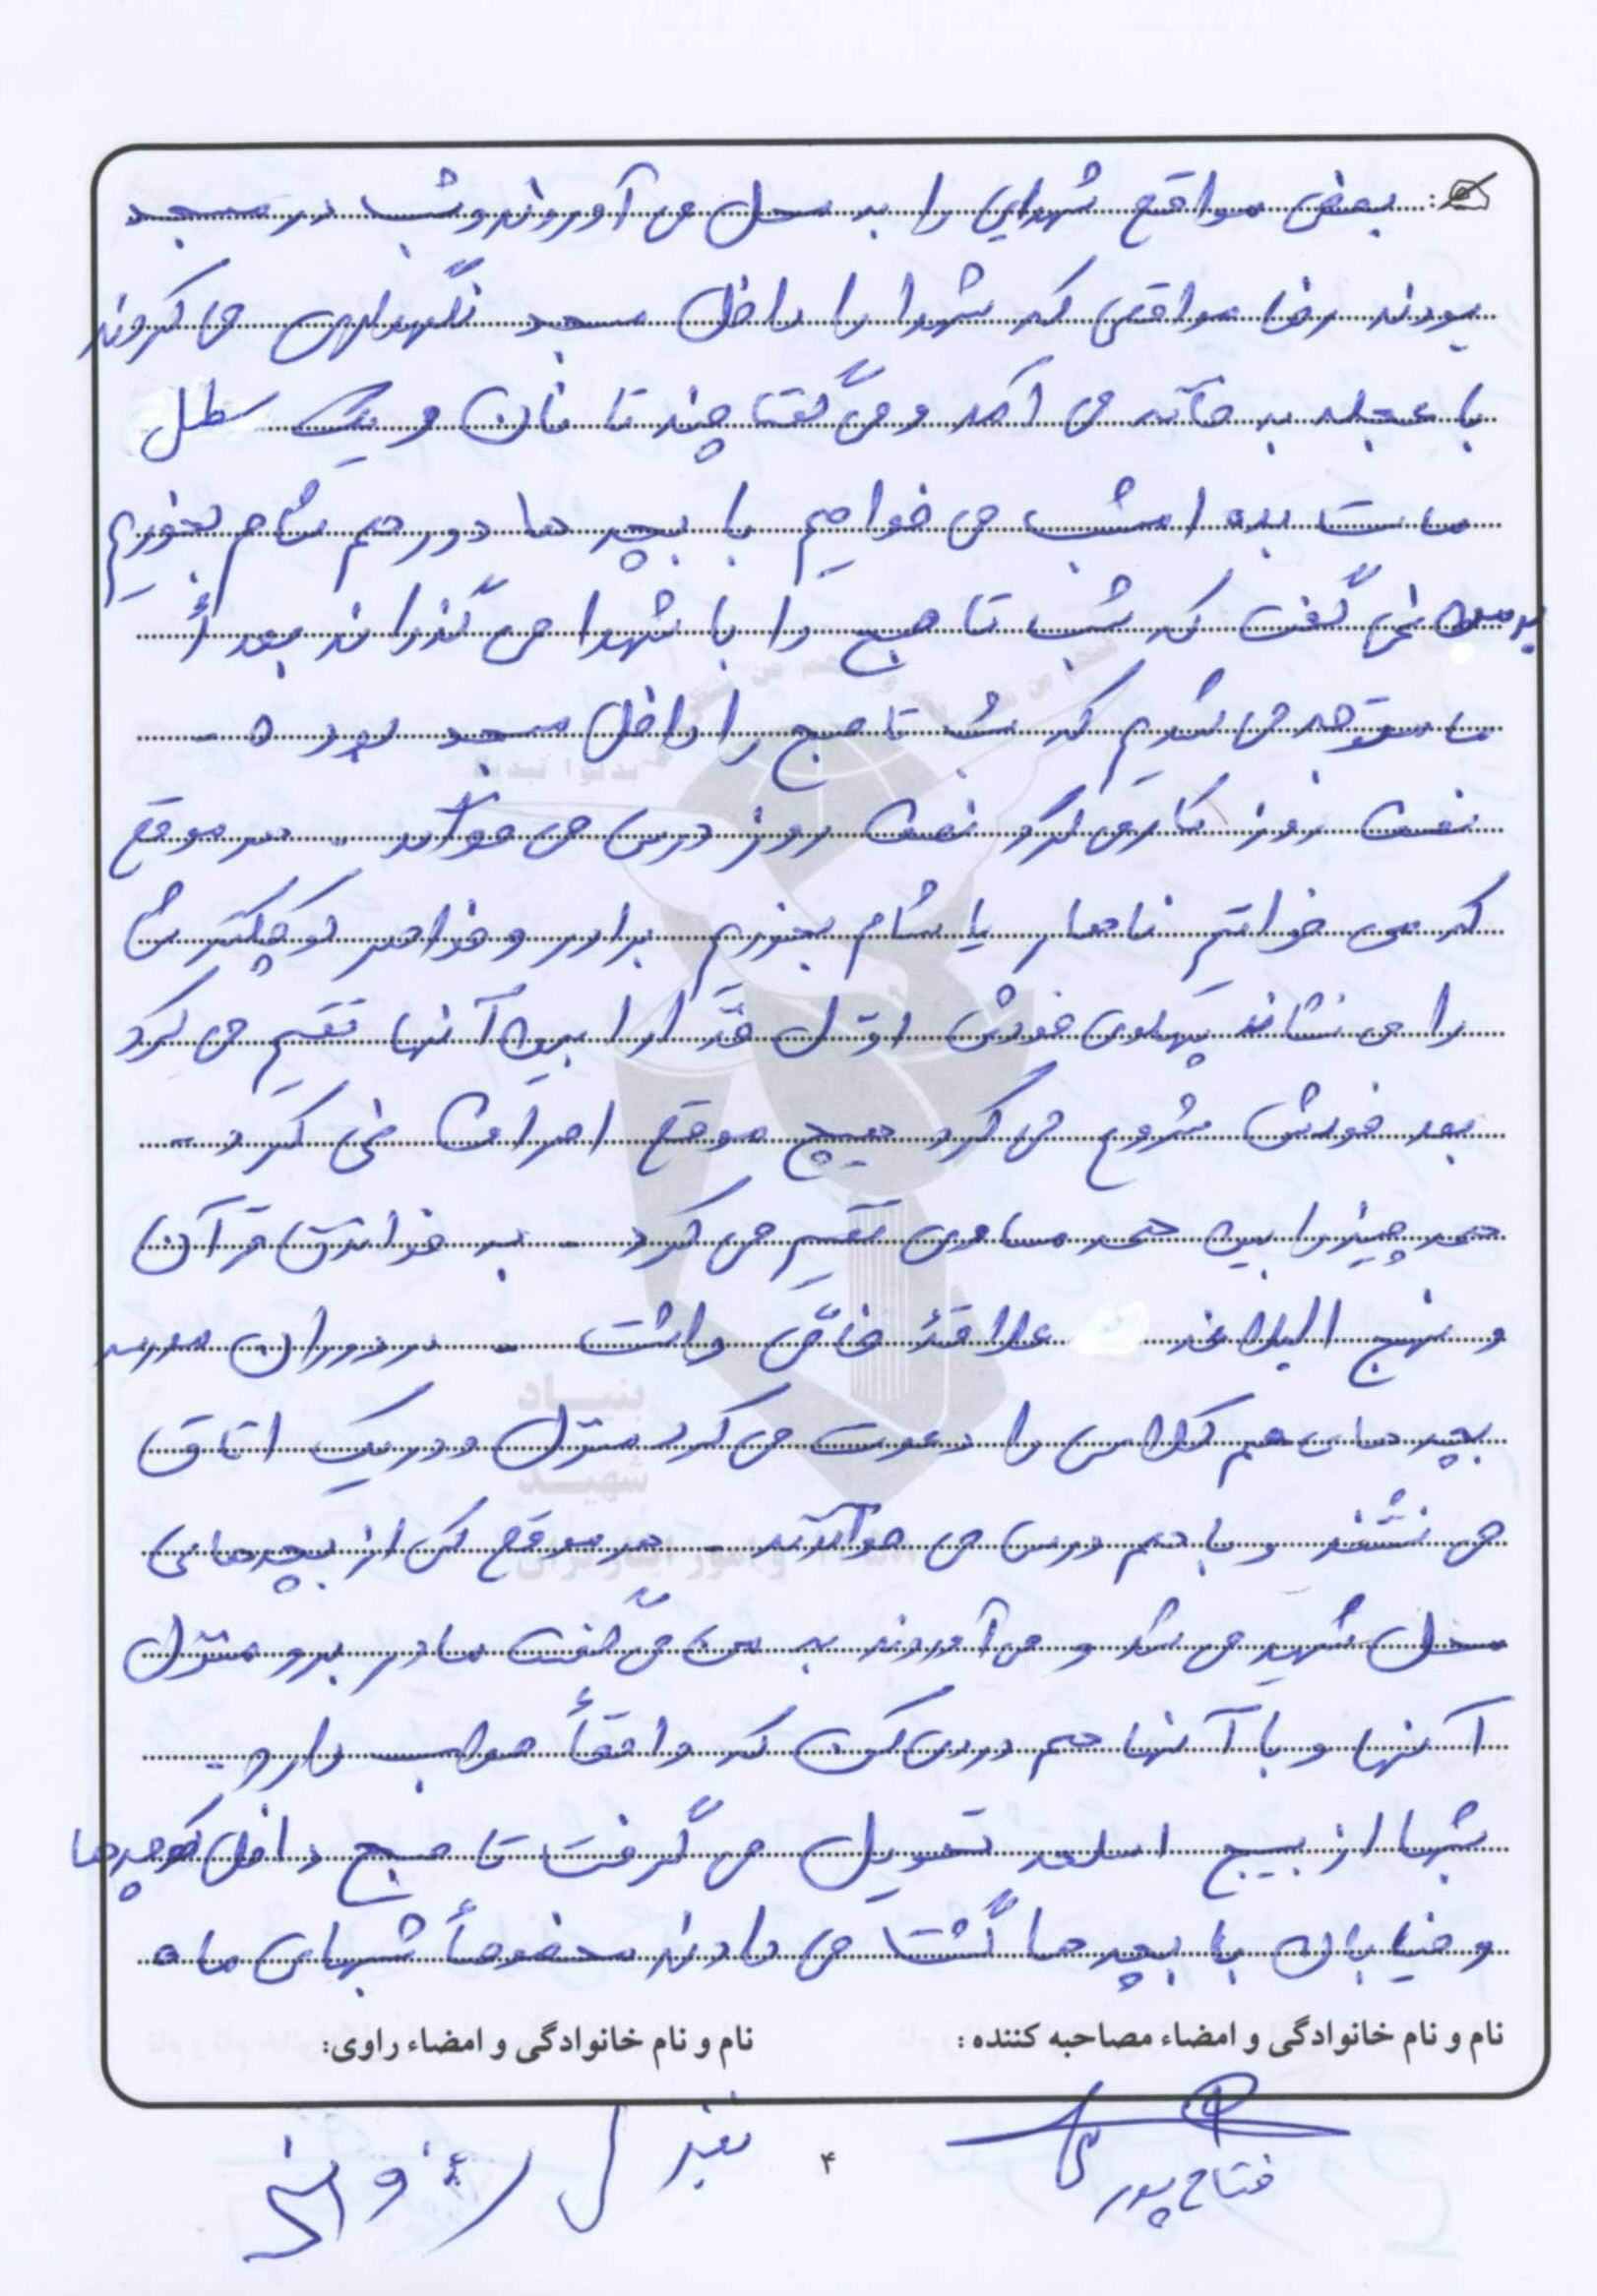 بعضی مواقع شهدایی را به محل می آوردند و شب در مسجد
بودند رضا مواقعی که شهدا را داخل مسجد نگهداری می کردند
با عجله به خانه می آمد و می گفت چند تا نان و یک سطل
ماست بده امشب می خواهیم با بچه ها دور هم شام بخوریم
به من نمی گفت که شب تا صبح را با شهدا می گذراند بعداً
ما متوجه می شدیم که شب تا صبح را داخل مسجد بوده -
نصف روز کار می کرد و نصف روز درس می خواند - هر موقع
که می خواستیم ناهار یا شام بخوریم برادر و خواهر کوچکترش
را می نشاند پهلوی خودش اوّل غذا را بین آنها تقسیم می کرد
بعد خودش شروع می کرد هیچ موقع اصراف نمی کرد -
همه چیز را بین همه مساوی تقسیم می کرد - به خواندن قرآن
و نهج البلاغه علاقۀ خاصّی داشت - در دوران مدرسه
بچه های هم کلاس را دعوت می کرد منزل و در یک اتاق
می نشستند و با هم درس می خواندند - هر موقع یکی از بچه های
محل شهید می شد و می آوردند به من می گفت مادر برو منزل
آنها و با آنها هم دردی کن که واقعاً صواب دارد -
شبها از بسیج اسلحه تحویل می گرفت تا صبح داخل کوچه ها
و خیابان با بچه ها گشت می دادند مخصوصاً شبهای ماه
نام و نام خانوادگی و امضاء مصاحبه کننده :
نام و نام خانوادگی و امضاء راوی:
فتاح پور
۴
بنیاد
شهید